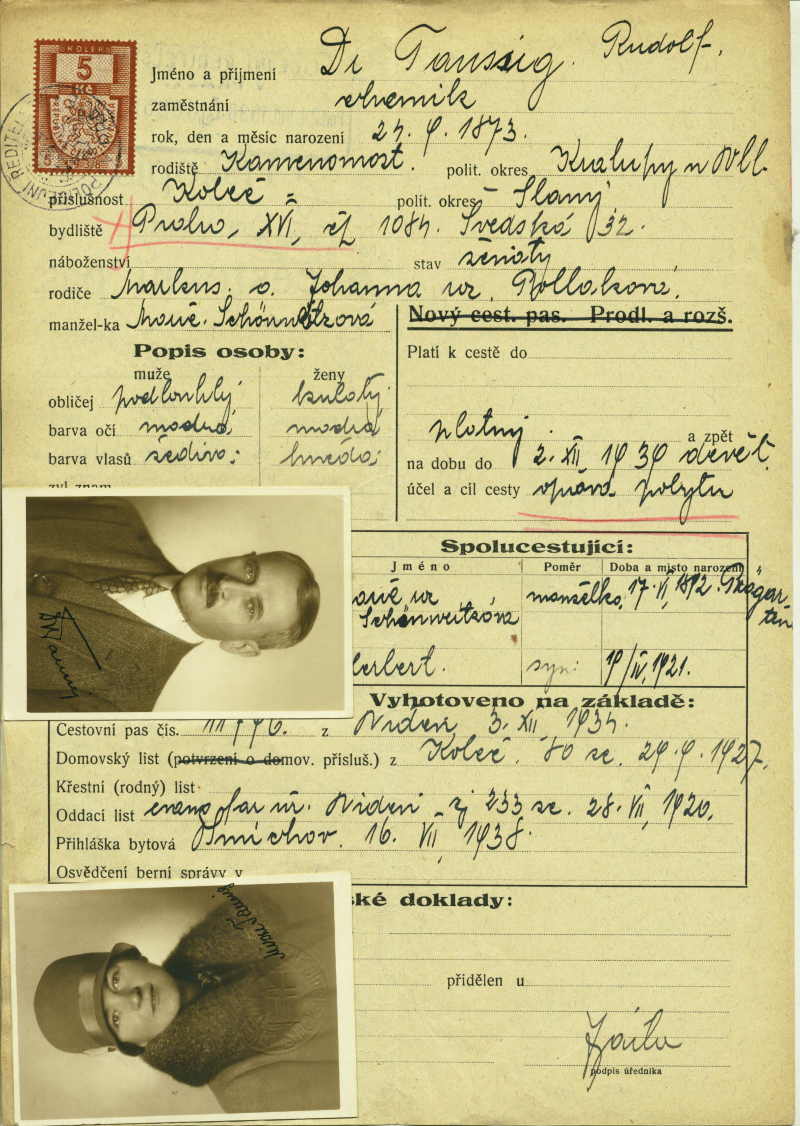 KOLEK
5
Kč
Jméno a příjmení Dr Taussig Rudolf,
zaměstnání chemik
rok, den a měsíc narození 24. 9. 1873.
rodiště Kamenomost. polit. okres Kralupy n Vlt.
příslušnost Koleč polit. okres Slaný
bydliště Praha, XVI, čp 1084. Švedská 32.
náboženství stav ženatý
rodiče Markus a Johanna roz. Pollaková,
manžel-ka Marie Schönweitzová
Nový cest. pas. Prodl. a rozš.
Popis osoby:
muže ženy
obličej podlouhlý kulatý
barva očí modrá modrá
barva vlasů šedivá hnědá
zvl. znam.
Platí k cestě do
platný a zpět
na dobu do 2. XII. 1939
účel a cíl cesty oprava pobytu
Spolucestující:
Jméno Poměr Doba a místo narození
roz manželka, 17. VI, 1892.
Schönweitzová
Herbert. syn: 1921.
Vyhotoveno na základě:
Cestovní pas čís. z Widen 3. XII, 1934.
Domovský list (potvrzení o domov. přísluš.) z Koleč. 80 ze 29. 9. 1927,
Křestní (rodný) list
Oddací list Wideň čj 233 ze 28. VII, 1920,
Přihláška bytová Smíchov. 16. VII, 1938.
Osvědčení berní správy v
ské doklady:
přidělen u
podpis úředníka